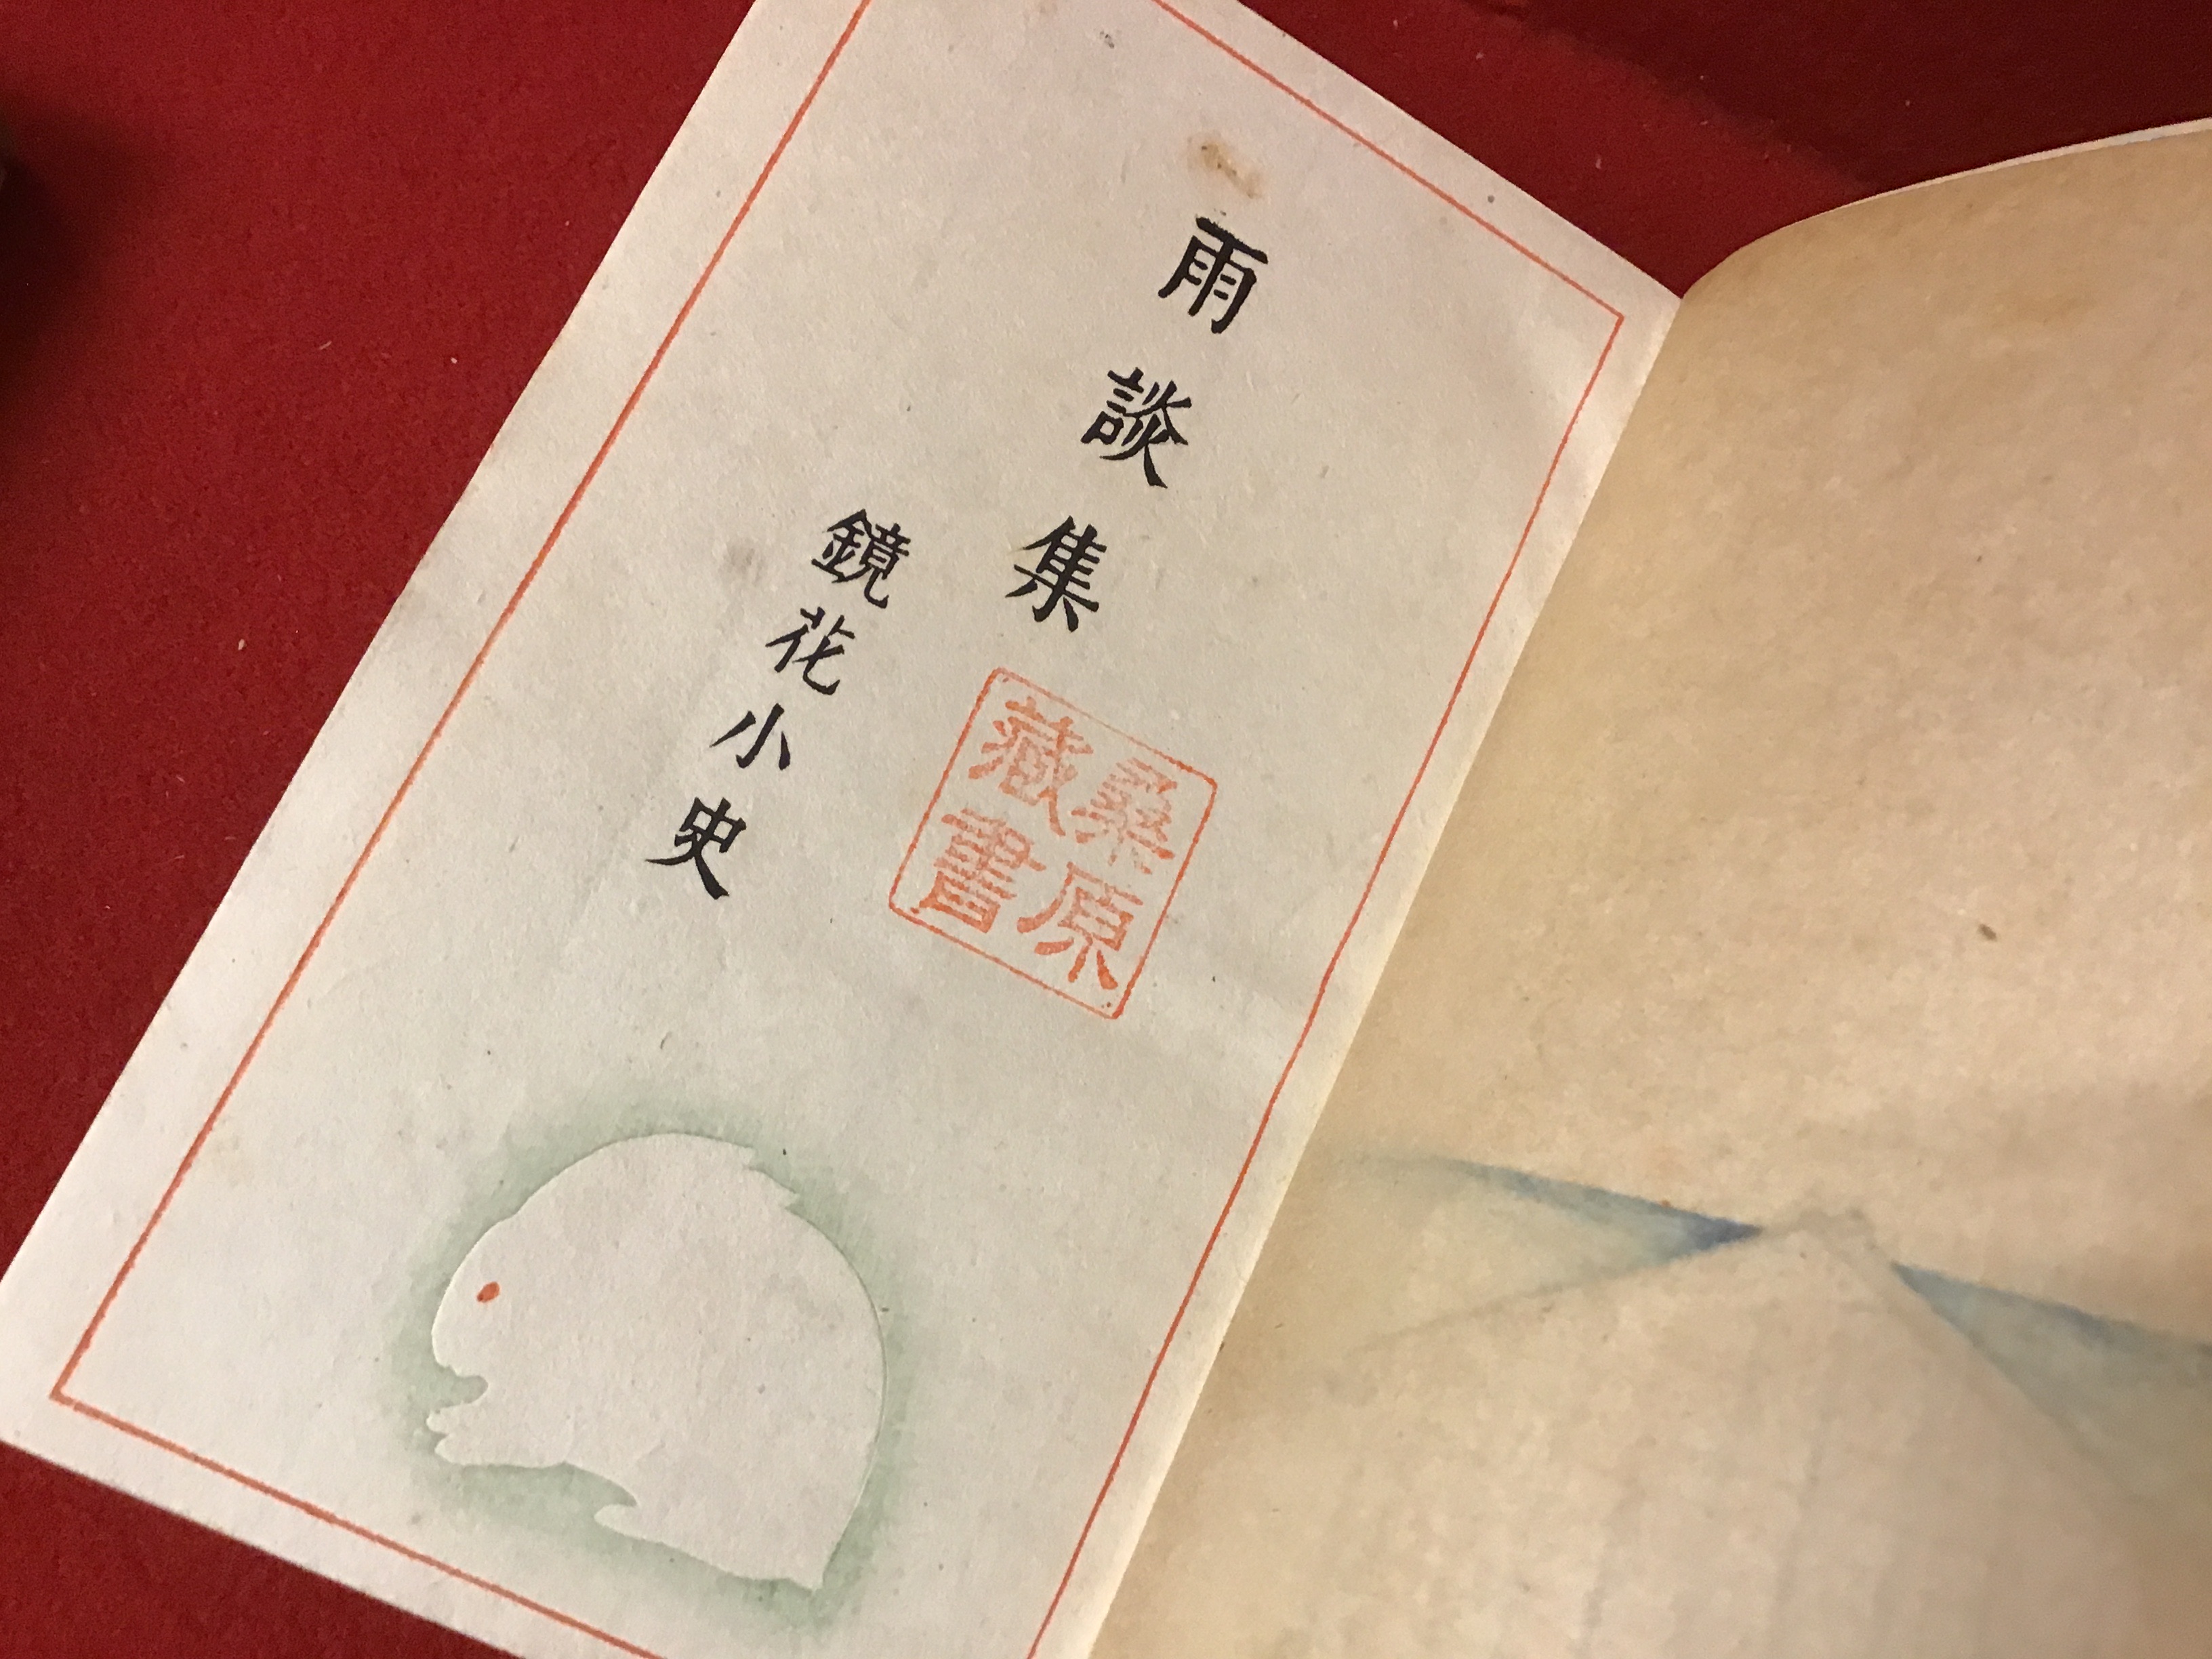 雨談集
鏡花小史
桑原
藏書